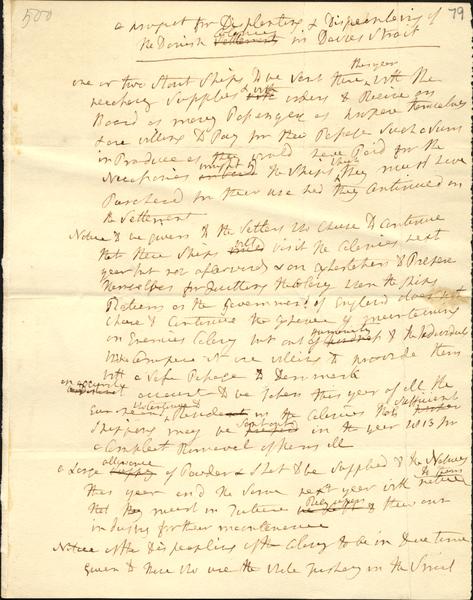 500
79
a project for Displanting & Dispeopleing of
the Danish Colonies Settlements in Davies Strait
one or two Stout Ships to be Sent there this year with the
necessary Supplies & with orders to Receive on
Board as many Passengers as prepare themselves
& are willing to Pay for their Passage Such a Sum
in Produce as they would have Paid for the
Necessaries the Ships they must have
Purchasd for their use had they Continued on
the Settlement
Notice to be given to the Settlers who Chuse to Continue
that these Ships will visit the Colonies next
year but not afterwards & an exhortation to Prepare
themselves for Quitting the Colony when the Ships
Return as the Government of England does not
Chuse to Continue the expence of maintaining
an Enemies Colony but out of humanity to the Individuals
who Compose it are willing to provide them
with a Safe Passage to Denmark
an accurate account to be taken this year of all the
Europeans in the Colonies that Sufficient
Shipping may be Sent out in the year 1813 for
a Compleat Removal of them all
a Large allowance of Powder & Shot to be Supplied to the Natives
this year and the Same next year with notice to them
that they must in Future Rely upon their own
industry for their maintenance
Notice of the Dispeopling of the Colony to be in Due time
given to those who use the whale fishery in the Strait